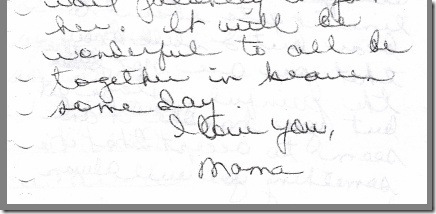 wait patiently to join
her. It will be
wonderful to all be
together in heaven
some day.
I love you,
Mama